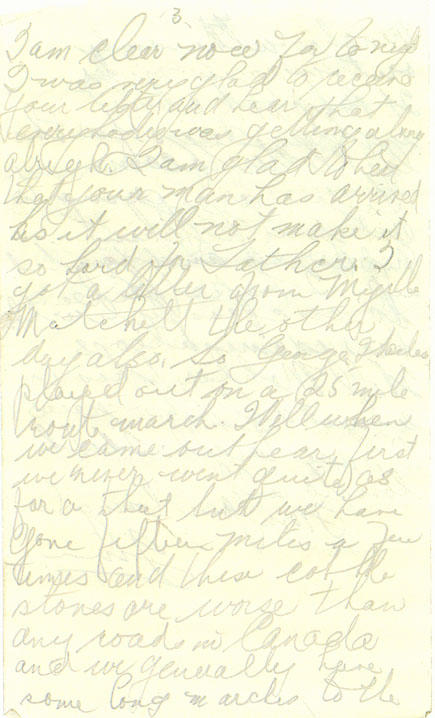 3
I am clear now for to nigh
I was very glad to receive
your letter and hear that
everybody was getting along
alrigh. I am glad to hear
that your man has arrived
as it will not make it
so hard for Father. I
got a letter from Myrtle
Matchett the other
day also. So George
played out on a 25 mile
rout march. Well when
we came out hear first
we never went quite as
far as that but we have
gone fifteen miles a few
times and these cobble
stones are worse than
any roads in Canada
and we generally have
some long marches to the